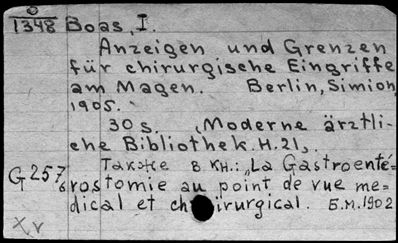 0
1348 Boas, I.
Anzeigen und Grenzen
für chirurgische Eingriffe
am Magen. Berlin, Simion,
1905.
30 s. „Moderne ärztli-
che Bibliothek. H. 21„.
Также в кн.: „La Gastroenté-
G 257/6 rostomie au point de vue me-
dical et chirurgical. Б.М. 1902
X, v